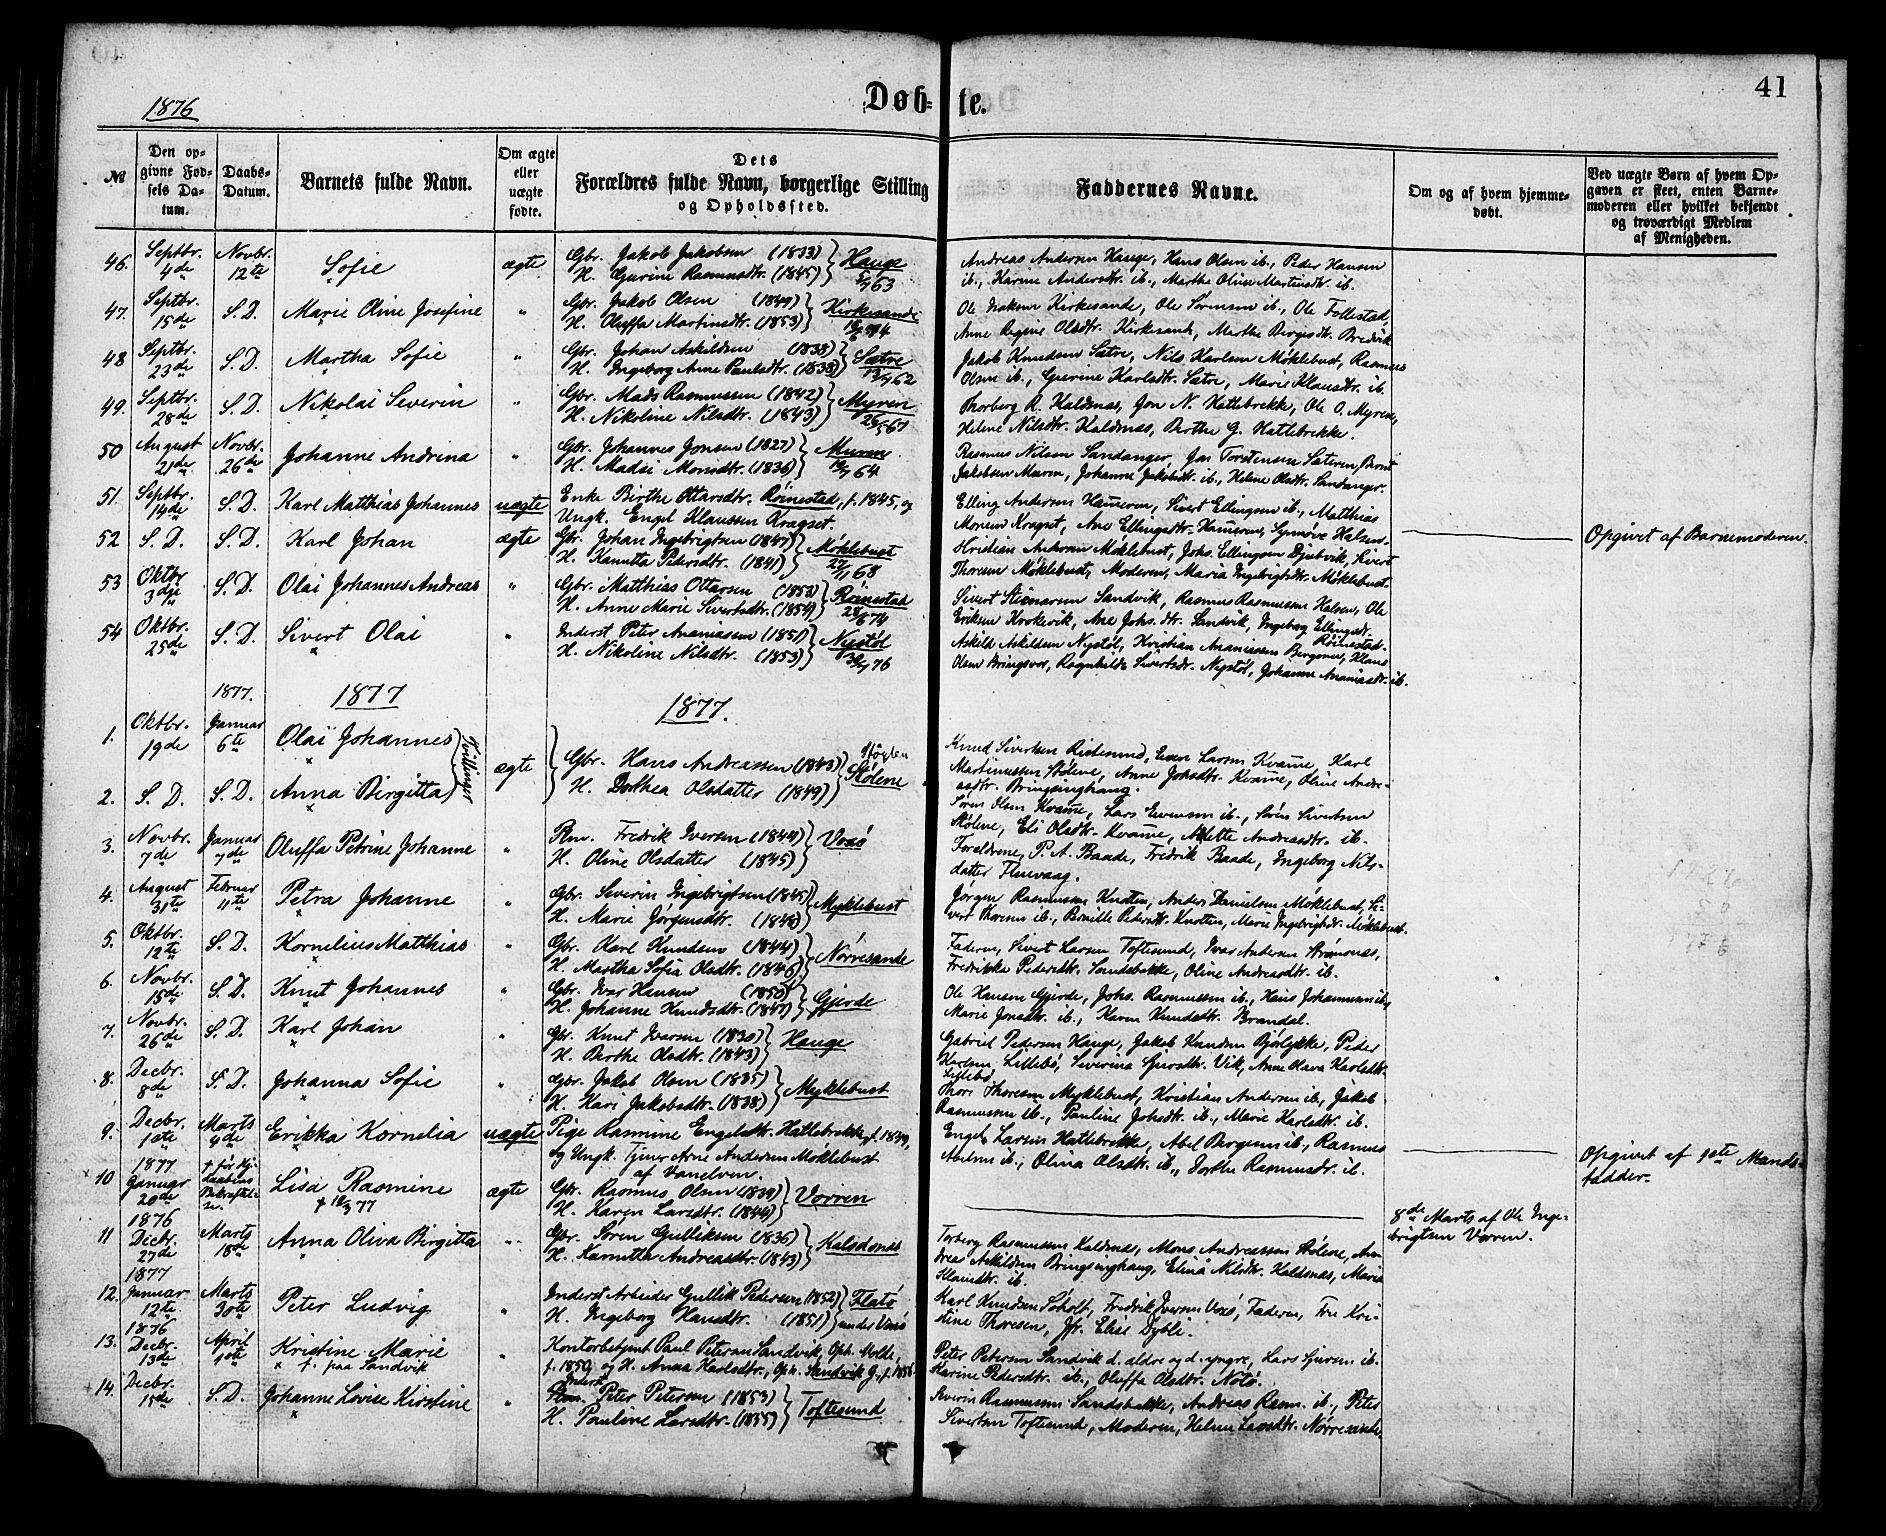 1876
Døb-te.
41
№
Den opgivne Fødsels Datum.
Daabs-Datum.
Barnets fulde Navn.
Om ægte eller uægte fødte.
Dets Forældres fulde Navn, borgerlige Stilling og Opholdssted.
Faddernes Navne.
Om og af hvem hjemmedøbt.
Ved uægte Børn af hvem Opgaven er skeet, enten Barnemoderen eller hvilket bekjendt og troværdigt Medlem af Menigheden.
46. Septbr. 4de Novbr. 12te Sofie ægte Gbr. Jakob Jakobsen (1833) Hauge
H. Gurine Rasmusdtr. (1845)
Andreas Andersen Hauge, Hans Olsen ib., Peder Hansen
ib., Karine Andersdtr. ib., Marthe Oline Martinsdtr. ib.
47. Septbr. 15de S. D. Marie Oline Josefine " Gbr. Jakob Olsen (1849) Kirkesande
H. Oluffa Martinsdtr. (1853)
Ole Isaksen Kirkesande, Ole Sørensen ib., Ole Follestad,
Anne Regine Olsdtr. Kirkesand, Marthe Bergesdtr. Bredvik
48 Septbr. 23de S. D. Martha Sofie " Gbr. Johan Askildsen (1838) Sætre
H. Ingeborg Anne Paulsdtr. (1838) 62
Jakob Knudsen Sætre, Nils Karlsen Møklebust, Rasmus
Olsen ib., Gurine Karlsdtr. Sætre, Marie Klausdtr. ib.
49. Septbr. 28de S. D. Nikolai Severin " Gbr. Mads Rasmussen (1842) Myren
H. Nikoline Nilsdtr. (1843)
Thorberg R. Kaldnæs, Jon N. Hattebrekke, Ole O. Myren,
Helene Nilsdtr. Kaldnæs, Berthe G. Hattebrekke.
50 August 21de Novbr. 26de Johanne Andrina " Gbr. Johannes Jonsen (1827)
H. Madsi Monsdtr. (1836)
Rasmus Nilsen Sandanger, Jon Torstensen Sæteren, Bernt
Jakobsen Muren, Johanne Jakobsdtr. ib., Helene Olsdtr. Sandanger.
51. Septbr. 14de S. D. Karl Matthias Johannes uægte Enke Birthe Ottarsdtr. Röinestad, f. 1845, og
Ungk. Engel Klaussen Kragset.
Elling Andersen Hauneren, Sivert Ellingsen ib., Matthias
Monsen Kragset, Ane Ellingsdtr. Hauneren, Synnøve Halsen.
Opgivet af Barnemoderen.
52 S. D. S. D. Karl Johan ægte Gbr. Johan Ingebrigtsen (1847) Møklebust
H. Kanutta Pedersdtr. (1841)
Kristian Andersen Møklebust, Johs. Ellingsen Djubvik, Sivert
Thoresen Møklebust, Moderen, Maria Ingebrigtsdtr. Møklebust.
53 Oktbr. 3dje S. D. Olai Johannes Andreas " Gbr. Matthias Ottarsen (1852) Röinestad
H. Anne Marie Sivertsdtr. (1854)
Sivert Steinarsen Sandvik, Rasmus Rasmussen Halsen, Ole
Eriksen Krokevik, Ane Johs.dtr. Sandvik, Ingeborg Ellingsdtr. Röinestad.
54 Oktbr. 25de S. D. Sivert Olai " Inderst Peter Ananiassen (1851) Nystøl
H. Nikoline Nilsdtr. (1853)
Askild Askildsen Nystøl, Kristian Ananiassen Bergene, Klaus
Olsen Bringsvor, Ragnhilde Sivertsdr. Nystøl, Johanne Ananiasdtr. ib.
1877. 1877 1877.
1. Oktbr. 19de Januar 6te Olai Johannes Tvillinger ægte Gbr. Hans Andreassen (1843) Stølene
2. S. D. S. D. Anna Birgitta H. Dorthea Olsdatter (1849)
Knud Sivertsen Ristesund, Even Larsen Kvamme, Karl
Martinussen Stølene, Anne Johsdtr. Kvamme, Oline Andreasdtr. Bringsinghaug.
Søren Olsen Kvamme, Lars Evensen ib., Søren Sivertsen
Stølene, Eli Olsdtr. Kvamme, Alette Andreasdtr. ib.
3. Novbr. 7de Januar 7de Oluffa Petrine Johanne " Plm. Fredrik Iversen (1844) Voxsö
H. Oline Olsdatter (1845)
Forældrene, P. A. Baade, Fredrik Baade, Ingeborg Nilsdatter Fluevaag.
4. August 31te Februar 11te Petra Johanne " Gbr. Severin Ingebrigtsen (1845) Myklebust
H. Marie Jørgensdtr. (1848)
Jørgen Rasmussen Knotten, Anders Danielsen Møklebust, Sivert Thoresen ib., Pernille Pedersdtr. Knotten, Marie Ingebrigtsdtr. Møklebust.
5. Oktbr. 12te S. D. Kornelius Matthias " Gbr. Karl Knudsen (1844) Nörvesande
H. Martha Sofia Olsdtr. (1846)
Faderen, Sivert Larsen Toftesund, Ivar Andersen Strømsnes,
Fredrikke Pedersdtr. Sandsbakke, Oline Andreasdtr. ib.
6. Novbr. 15de S. D. Knut Johannes " Gbr. Ivar Hansen (1850) Gjerde
H. Johanne Knudsdtr. (1847)
Ole Hansen Gjerde, Johs. Rasmussen ib., Hans Johannesen ib.,
Marie Jonsdtr. ib., Karen Knudsdtr. Brandal.
7. Novbr. 26de S. D. Karl Johan " Gbr. Knut Ivarsen (1830) Hauge
H. Birthe Olsdtr. (1843)
Gabriel Pedersen Hauge, Jakob Knudsen Bjørlykke, Peder
Karlsen Lillebö, Severina Sjursdtr. Vik, Anne Olava Karlsdtr. Lillebø.
8. Decbr. 8de S. D. Johanna Sofie " Gbr. Jakob Olsen (1835) Myklebust
H. Kari Jakobsdtr. (1838)
Thore Thoresen Myklebust, Kristian Andersen ib., Jakob
Rasmussen ib., Pauline Johsdtr. ib., Marie Karlsdtr. ib.
9. Decbr. 10te Marts 4de Erikka Kornelia uægte Pige Rasmine Engelsdtr. Hattebrekke, f. 1849,
og Ungk. Tjener Arne Andersen Møklebust af Vanelven.
Engel Larsen Hattebrekke, Abel Bergesen ib., Rasmus
Abelsen ib., Olina Olsdtr. ib., Dorthe Rasmusdtr. ib.
Opgivet af 1ste Mandsfadder.
10 1877 Januar 20de † før Hj.daabens Bekræftelse. Lisa Rasmine ægte Gbr. Rasmus Olsen (1839) Vorren
H. Karen Larsdtr. (1844)
8de Marts af Ole Ingebrigtsen Vorren.
11 1876 Decbr. 27de Marts 18de Anna Oliva Birgitta " Gbr. Søren Gulliksen (1836) Kalsdnæs
H. Karnitta Andreasdtr. (1843)
Torberg Rasmussen Kaldnæs, Mons Andreassen Stølene, Andreas Askildsen Bringsinghaug, Elina Nilsdtr. Kaldsnæs, Maria
Klausdtr. ib.
12. 1877 Januar 12te Marts 30te Peter Ludvig " Inderst Arbeider Gullik Pedersen (1852) Flatö
H. Ingeborg Hansdtr. (1851) under Voxsö
Karl Knudsen Søholt, Fredrik Iversen Voxsö, Faderen, Fru Kristine Thoresen, Jfr. Elise Dybli.
13. 1876 Decbr. 13de April 1ste Kristine Marie f. paa Sandvik " Kontorbetjent Paul Petersen Sandvik, Oph. Molde,
f. 1850, og H. Anna Karlsdtr., Oph. Sandvik G., f. 1856
Peter Petersen Sandvik d. ældre og d. yngre, Lars Sjursen ib.
Karine Pedersdtr. ib., Oluffa Olsdtr. Notö.
14. Decbr. 15de S. D. Johanne Lovise Kirstine " Inderst Peter Petersen (1853) Toftesund
H. Pauline Larsdtr. (1855)
Severin Rasmussen Sandsbakke, Andreas Rasm. ib., Peter
Sivertsen Toftesund, Moderen, Helene Larsdtr. Nörvesande.